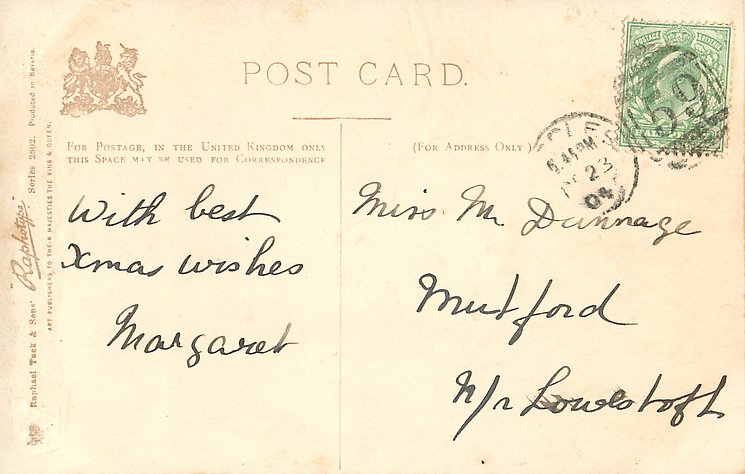 POST CARD.
FOR POSTAGE, IN THE UNITED KINGDOM ONLY
THIS SPACE MAY BE USED FOR CORRESPONDENCE
(FOR ADDRESS ONLY)
With best
Xmas wishes
Margaret
Miss M. Dunnage
Mutford
N/r Lowestoft
Raphael Tuck & Sons' "Raphotype" Series 2802. Produced in Bavaria.
ART PUBLISHERS TO THEIR MAJESTIES THE KING & QUEEN.
POSTAGE
6.45PM
23
04